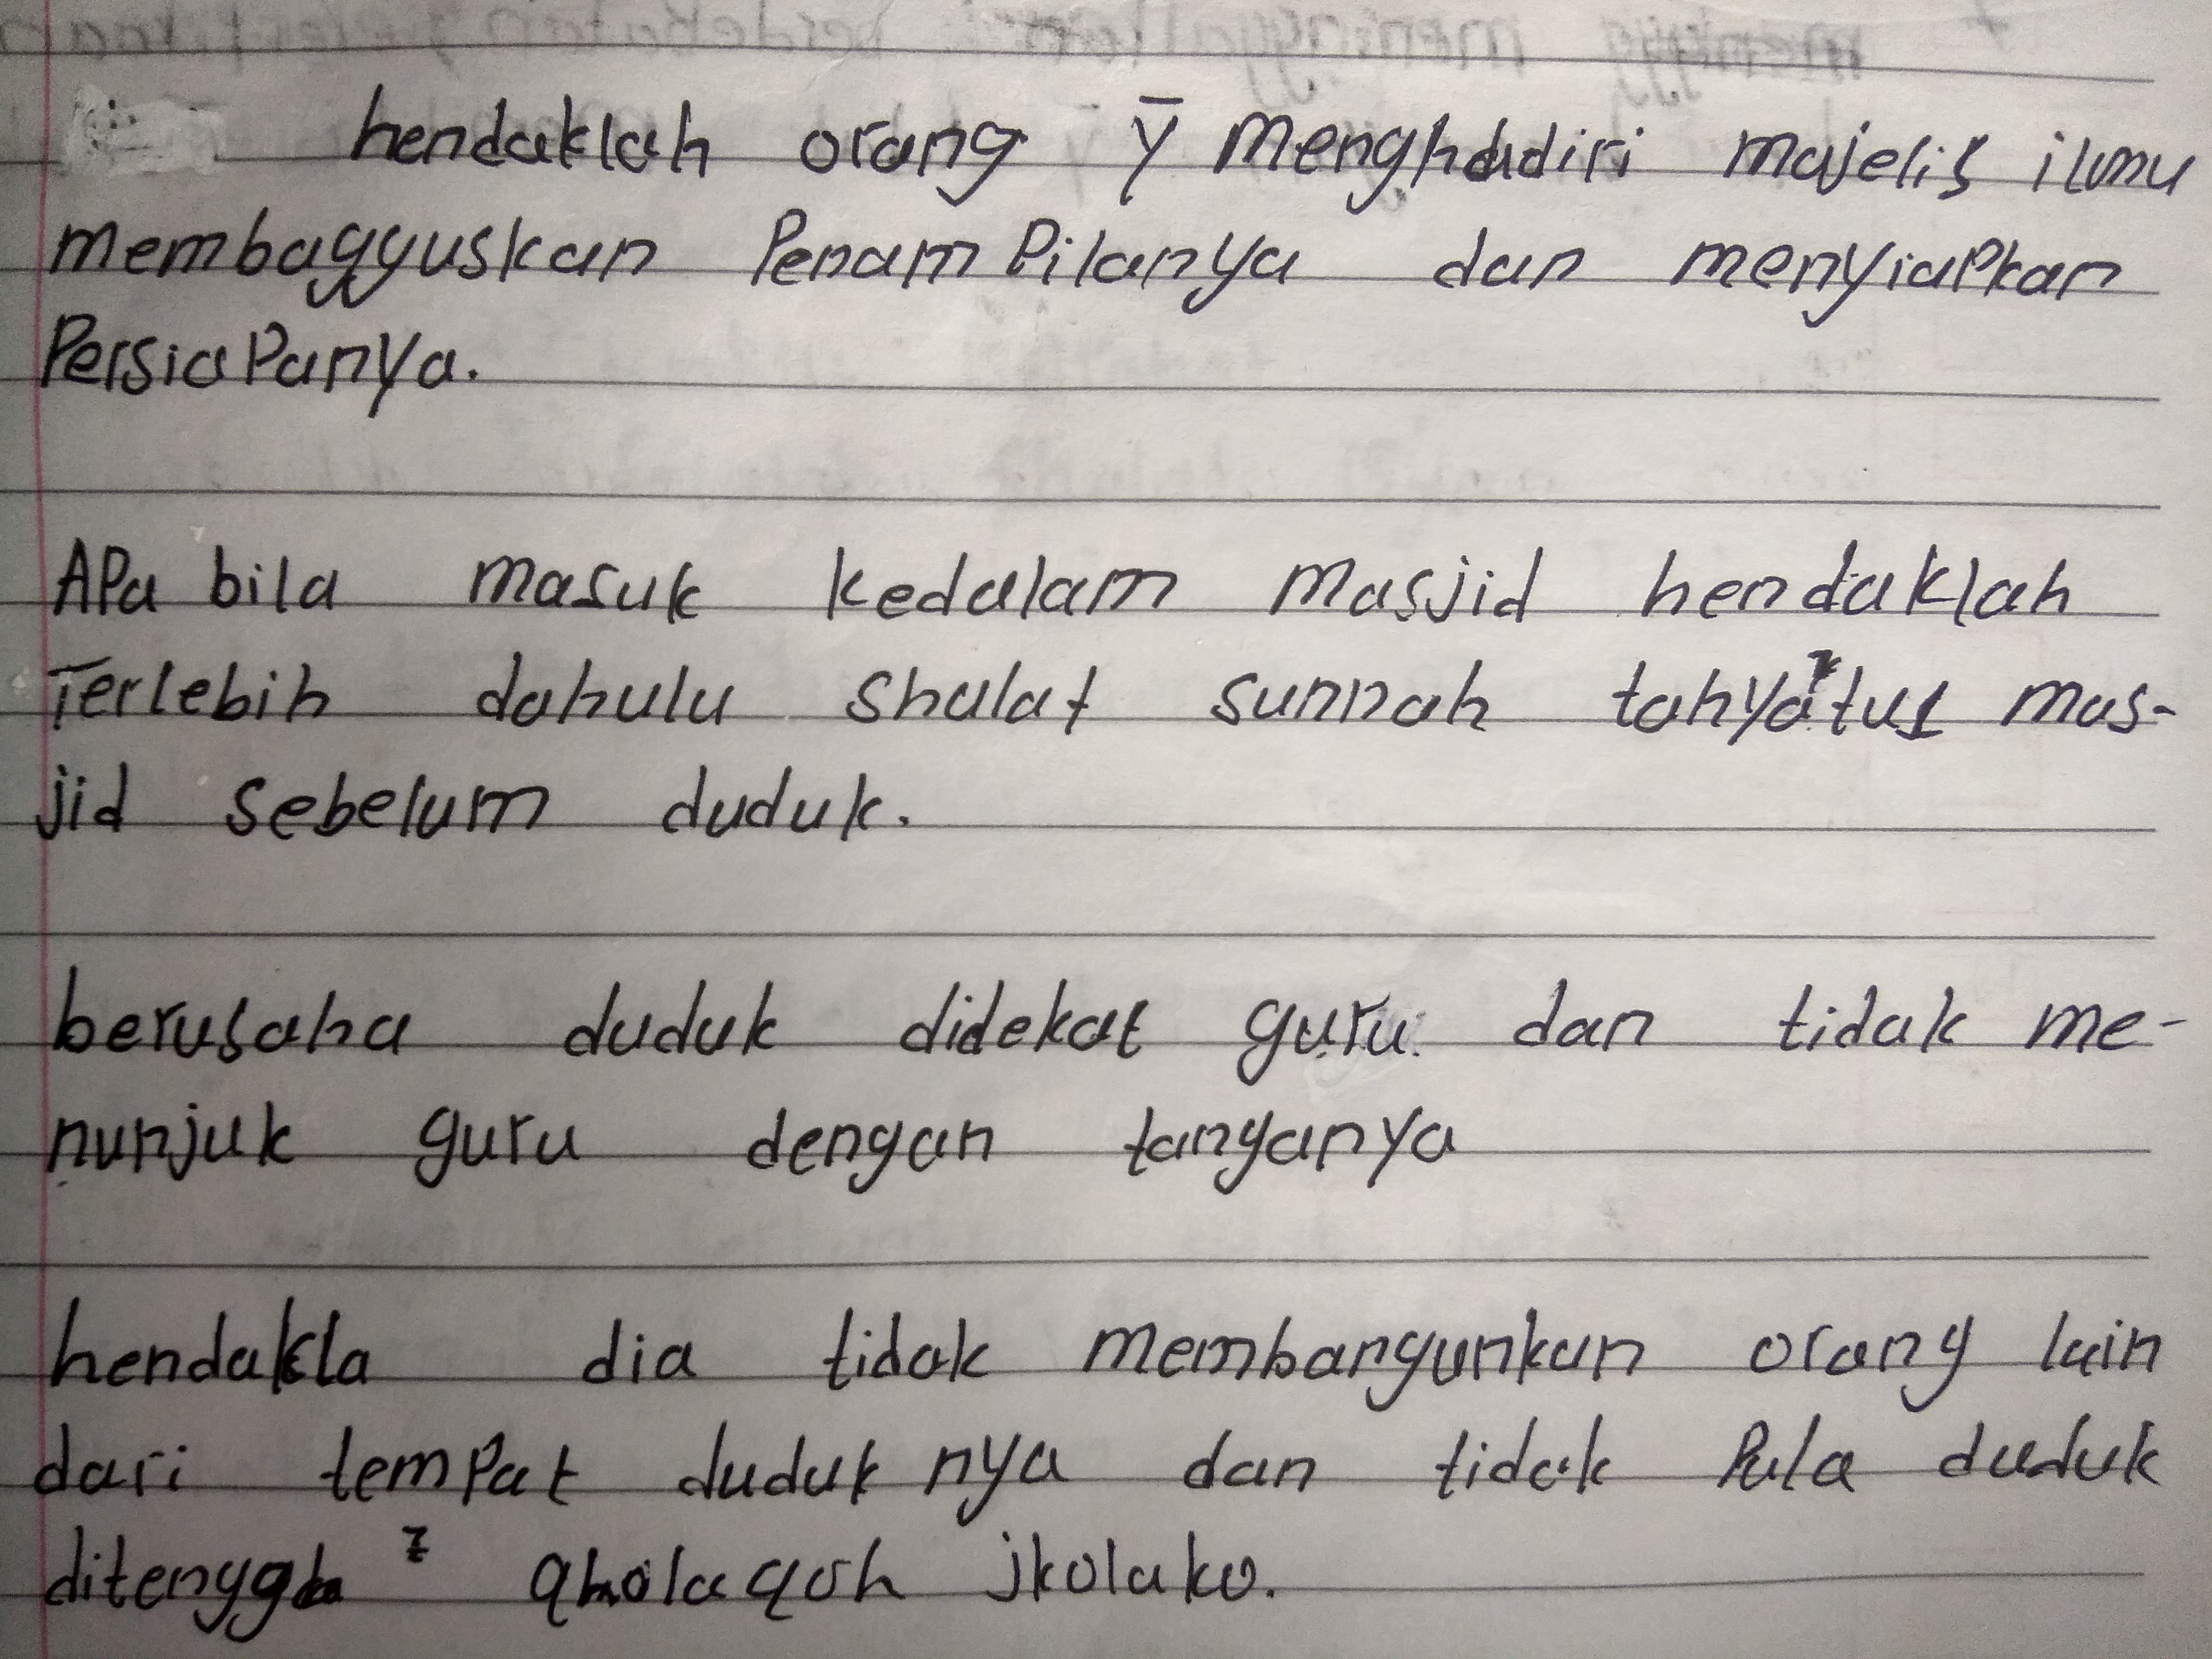 hendaklah orang ȳ menghadiri majelis ilmu
membagguskan PenamPilanya dan menyiaPkan
PersiaPanya.
APa bila masuk kedalam masjid hendaklah
Terlebih dahulu shalat sunnah tahyatus mas-
jid sebelum duduk.
berusaha duduk didekat guru dan tidak me-
nunjuk guru dengan tanganya
hendakla dia tidak membangunkan orang lain
dari temPat duduk nya dan tidak Pula duduk
ditengga